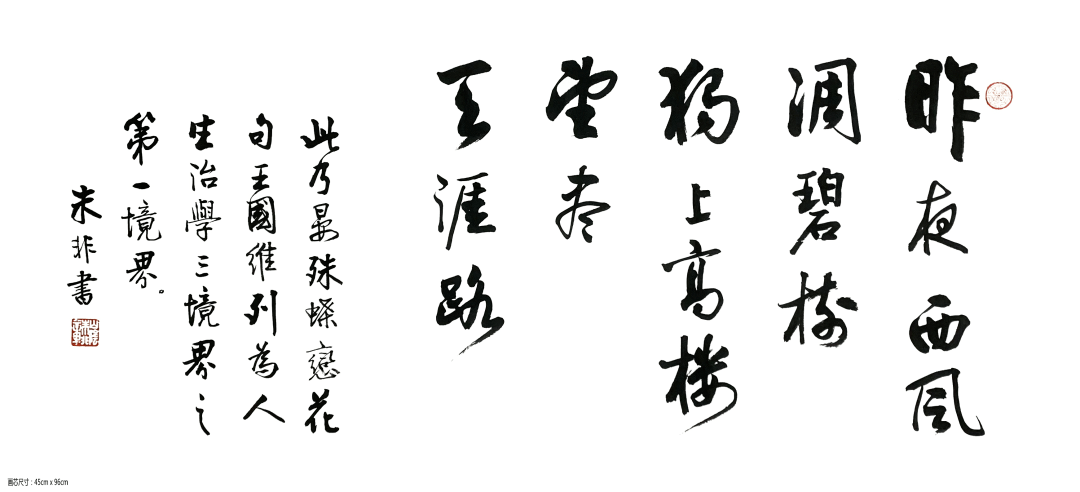 昨夜西风
凋碧树
独上高楼
望尽
天涯路
此乃晏殊蝶戀花
句王國維列為人
生治學三境界之
第一境界。
朱非书
画芯尺寸：45cm x 96cm